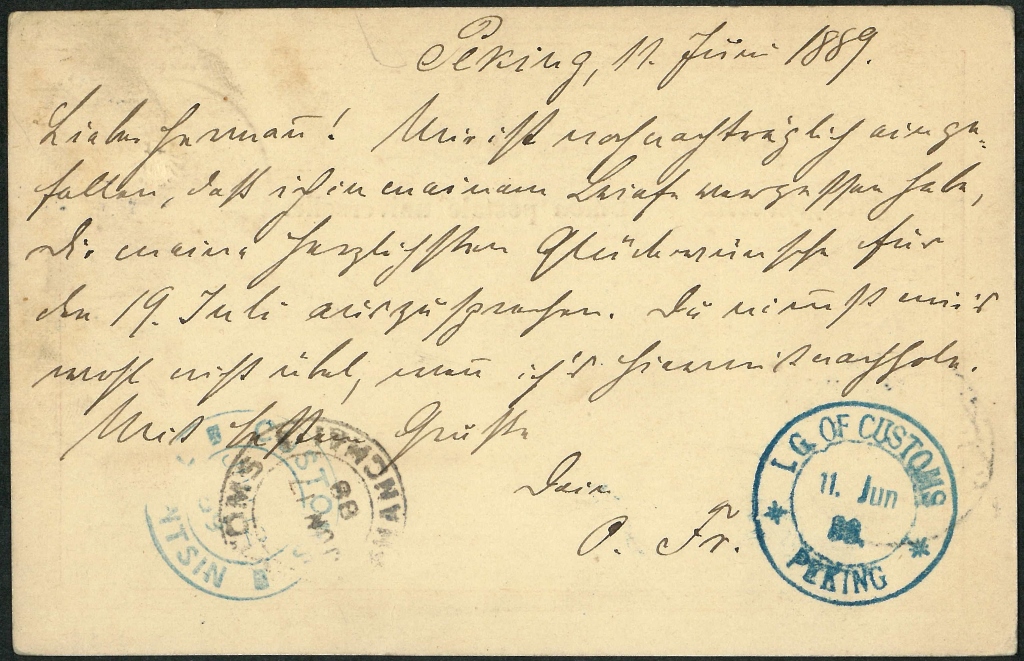 Peking, 11. Juni 1889.
Lieber Hermañ! Mir ist noch nachträglich einge-
fallen, daß ich in meinem Briefe vergessen habe,
Dir meine herzlichsten Glückwünsche für
den 19. Juli auszusprechen. Du nim̄st mir's
wohl nicht übel, weñ ich's hiermit nachhole.
Mit besten Grüßen
Dein
O. Fr.
I.G. OF CUSTOMS
11. Jun
PEKING
CUSTOMS
NTSIN
MANCHAI
CUSTOMS
JUN